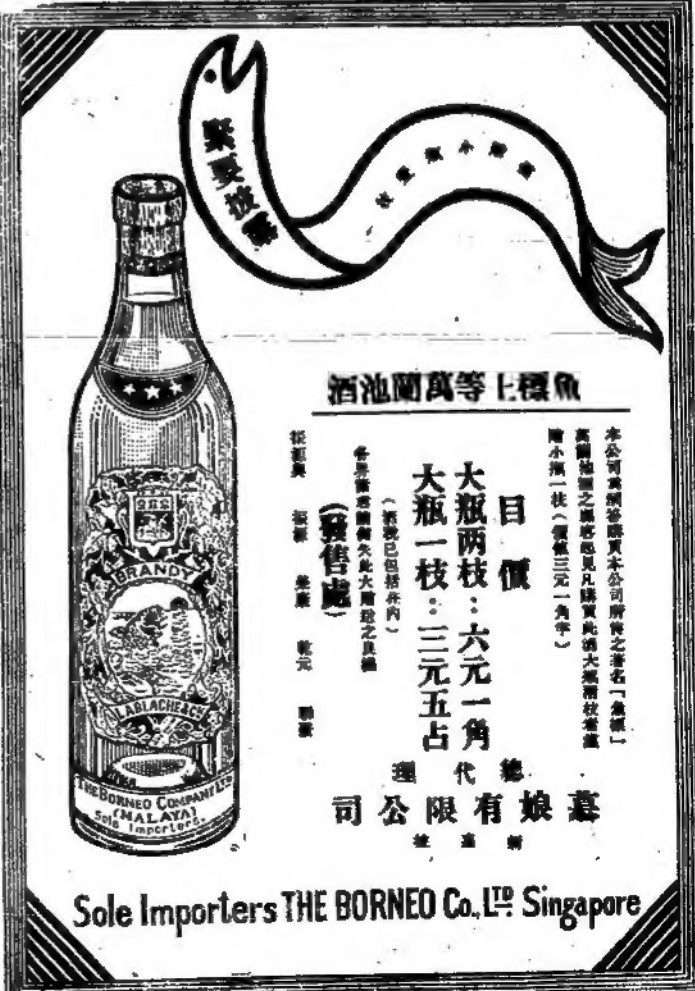 緊要披露
小瓶
魚標上等萬蘭池酒
本公司為酬答購買本公司所售之著名「魚標」
萬蘭池酒之顧客起見凡購買此酒大瓶兩枝者
贈小瓶一枝(價值三元一角半)
目價
大瓶两枝:六元一角
大瓶一枝:三元五占
(酒稅已包括在內)
各界諸君請勿失此大贈送之良機
(發售處)
振源 乾元
總代理
慕娘有限公司
新嘉坡
BRANDY
LABLACHE & Co
THE BORNEO COMPANY LTD
(MALAYA)
Sole Importers.
Sole Importers THE BORNEO Co., LTD. Singapore